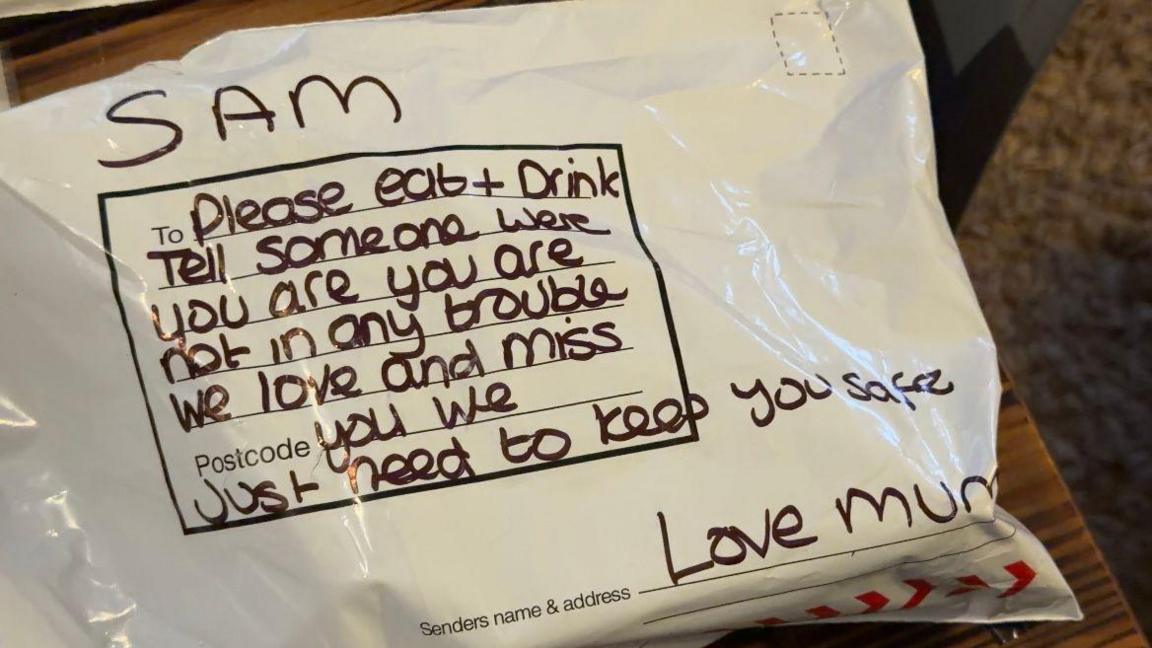 SAM
To Please eat + Drink
Tell someone were
you are you are
not in any trouble
we love and miss
Postcode you we
just need to keep you safe
Love mum
Senders name & address